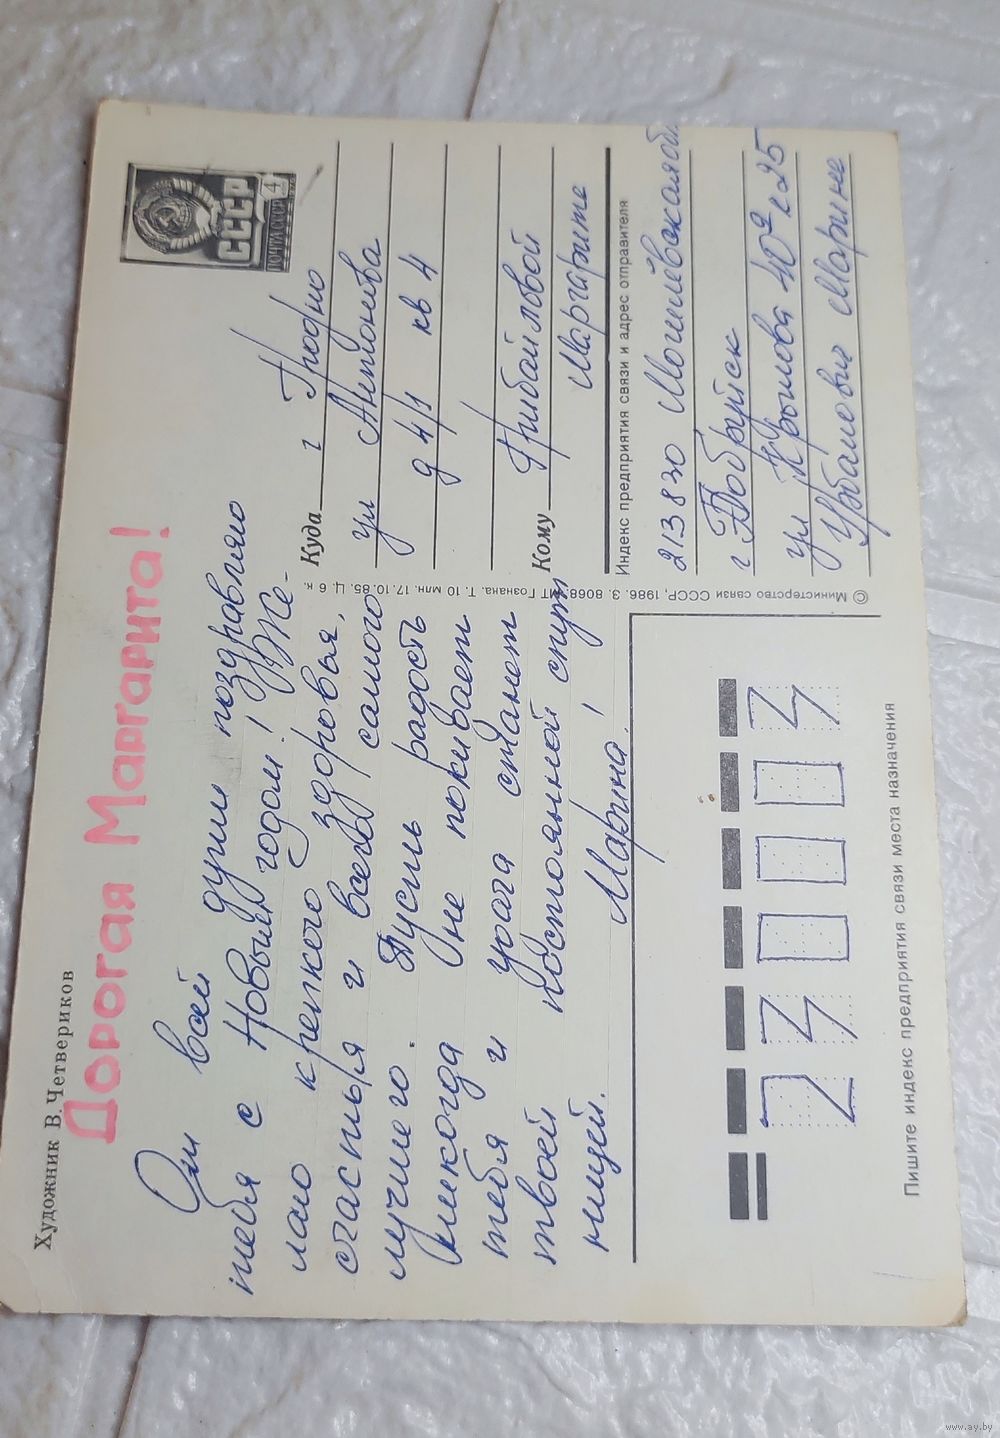 Художник В. Четвериков
Дорогая Маргарита!
От всей души поздравляю
тебя с Новым годом! Же-
лаю крепкого здоровья,
счастья и всего самого
лучшего. Пусть радость
никогда не покидает
тебя и удача станет
твоей постоянной спут
ницей. Марина.
СССР
ПОЧТА СССР 4
Куда г Гродно
ул Антонова
д 4/1 кв 4
Кому
Маргарите
Индекс предприятия связи и адрес отправителя
213830 Могилёвская обл.
г Бобруйск
ул Крылова
Урбанович Марине
© Министерство связи СССР, 1986. З. 8068. МТ Гознака. Т. 10 млн. 17.10.85. Ц. 6 к.
230003
Пишите индекс предприятия связи места назначения
www.ay.by